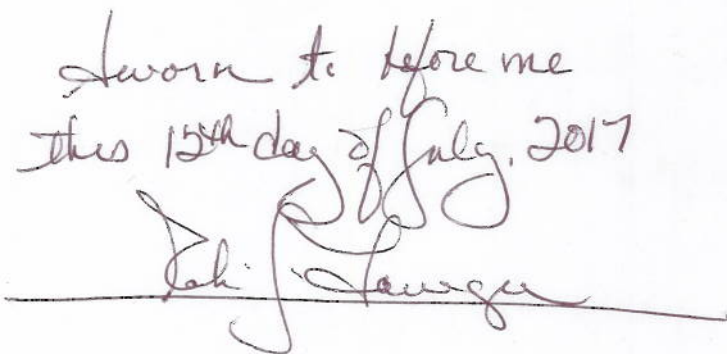 Sworn to before me
this 12th day of July, 2017